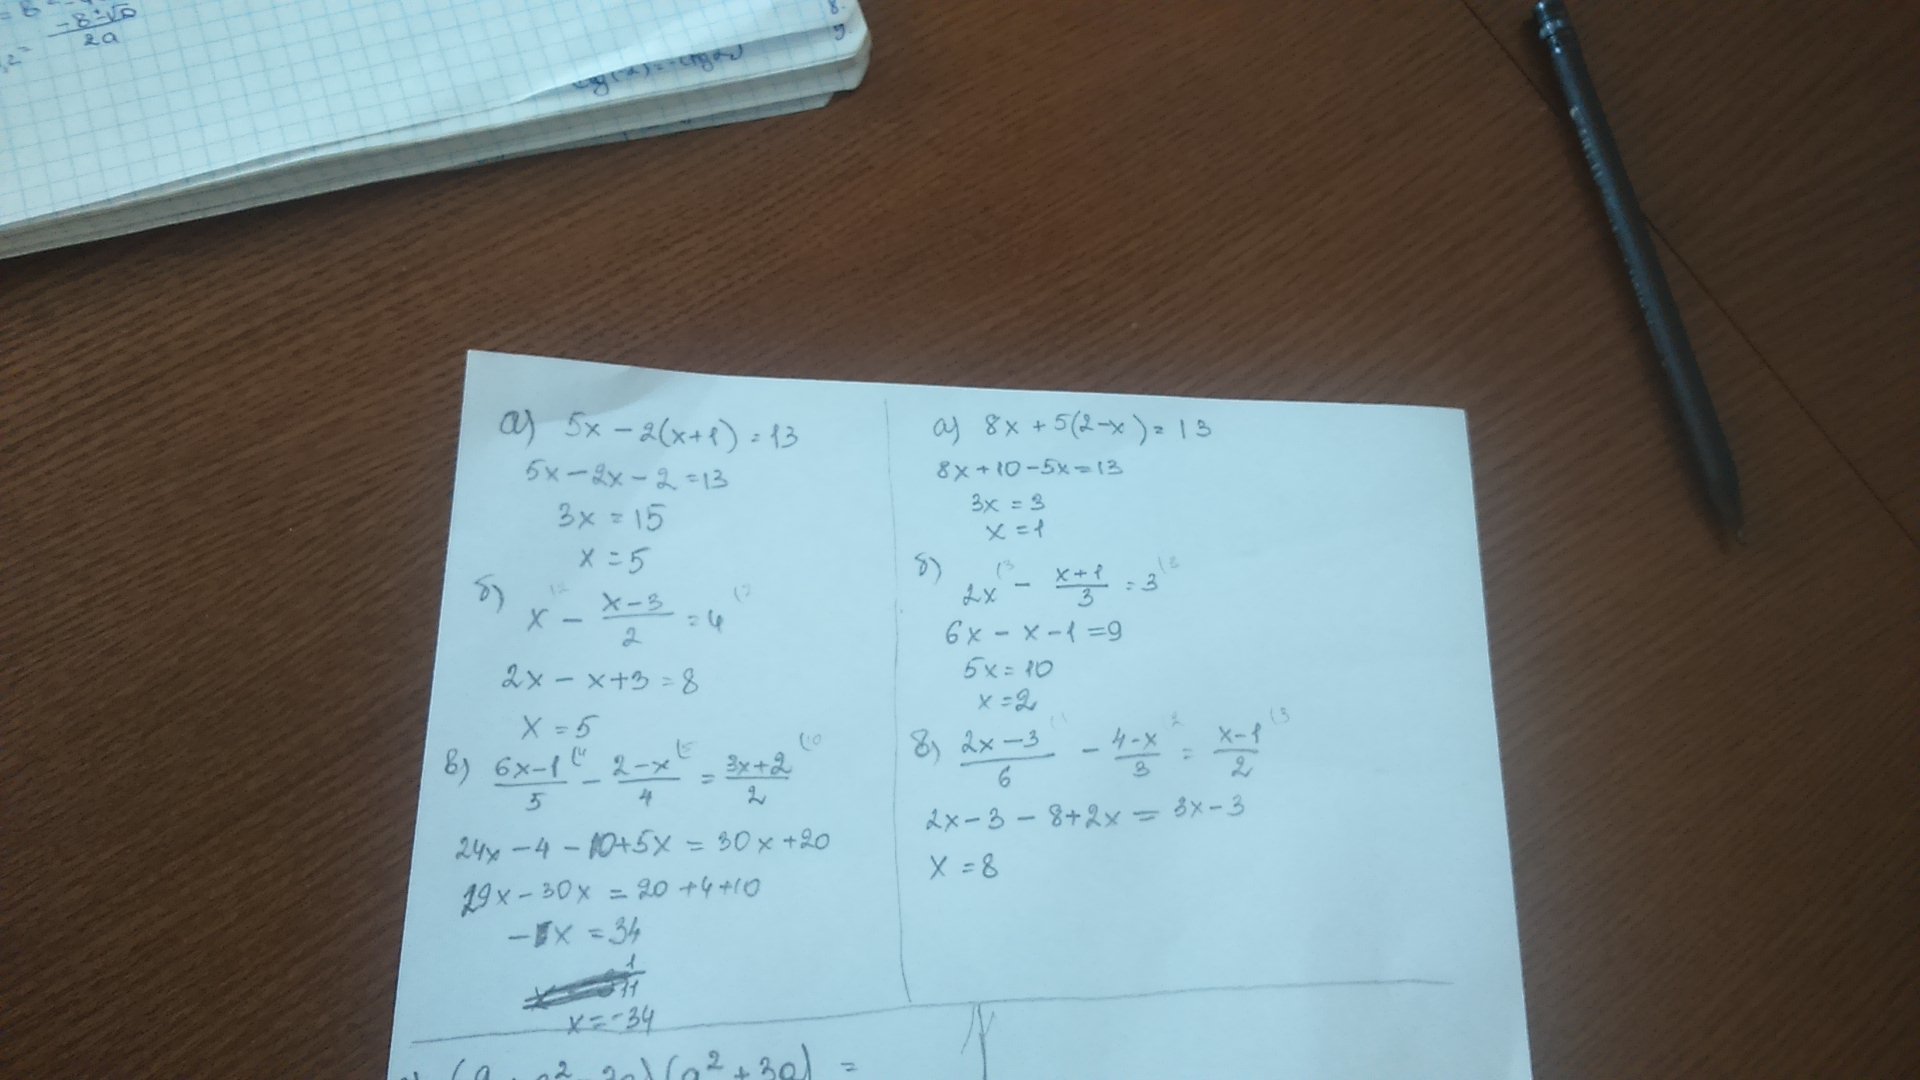 -8±√D
2a
а) 5x - 2(x+1) = 13
5x - 2x - 2 = 13
3x = 15
x = 5
б) x - (x-3)/2 = 4
2x - x+3 = 8
x = 5
в) (6x-1)/5 (4 - (2-x)/4 (5 = (3x+2)/2 (10
24x - 4 - 10+5x = 30x + 20
29x - 30x = 20 + 4 + 10
-1x = 34
x = -34
а) 8x + 5(2-x) = 13
8x + 10 - 5x = 13
3x = 3
x = 1
б) 2x (3 - (x+1)/3 = 3 (3
6x - x - 1 = 9
5x = 10
x = 2
в) (2x-3)/6 (1 - (4-x)/3 (2 = (x-1)/2 (3
2x - 3 - 8 + 2x = 3x - 3
x = 8